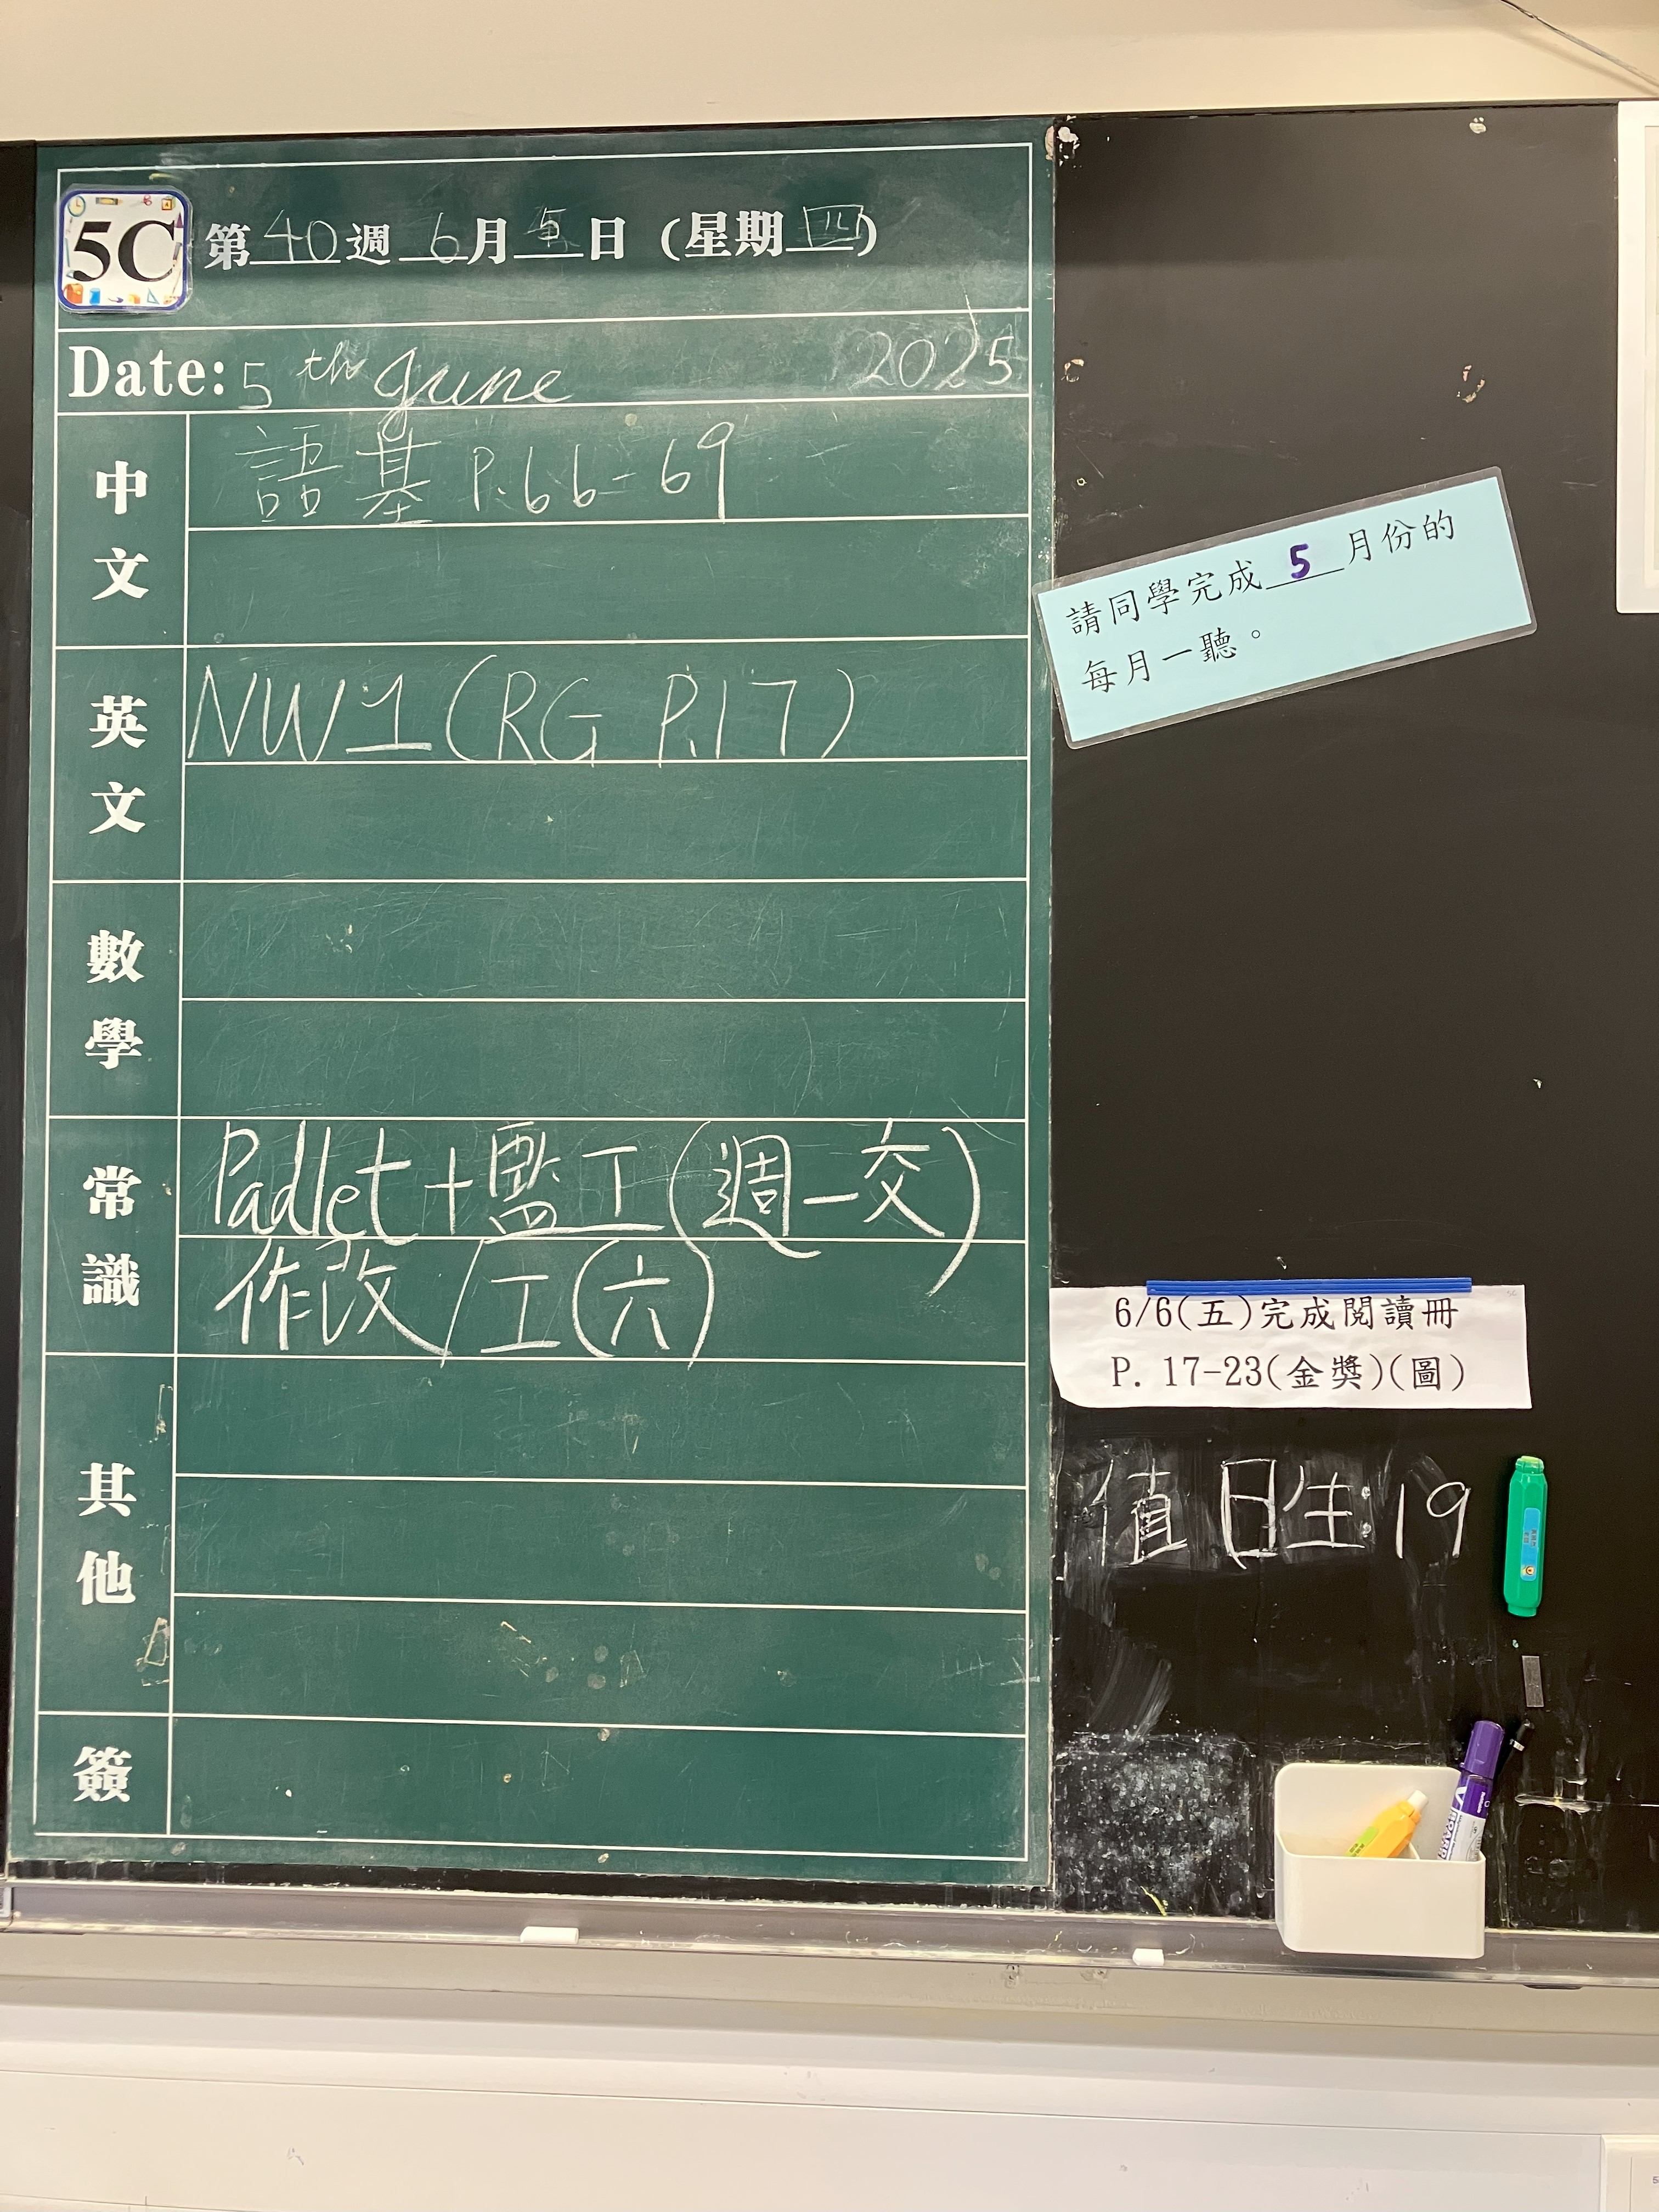 5C 第 40 週 6 月 5 日 (星期四)
Date: 5th June 2025
中文
語基 P.66-69
英文
NW1 (RG P.17)
數學
常識
Padlet + 工 (週一交)
作改/工(六)
其他
簽
請同學完成 5 月份的
每月一聽。
6/6(五)完成閱讀冊
P. 17-23(金獎)(圖)
值日生: 19